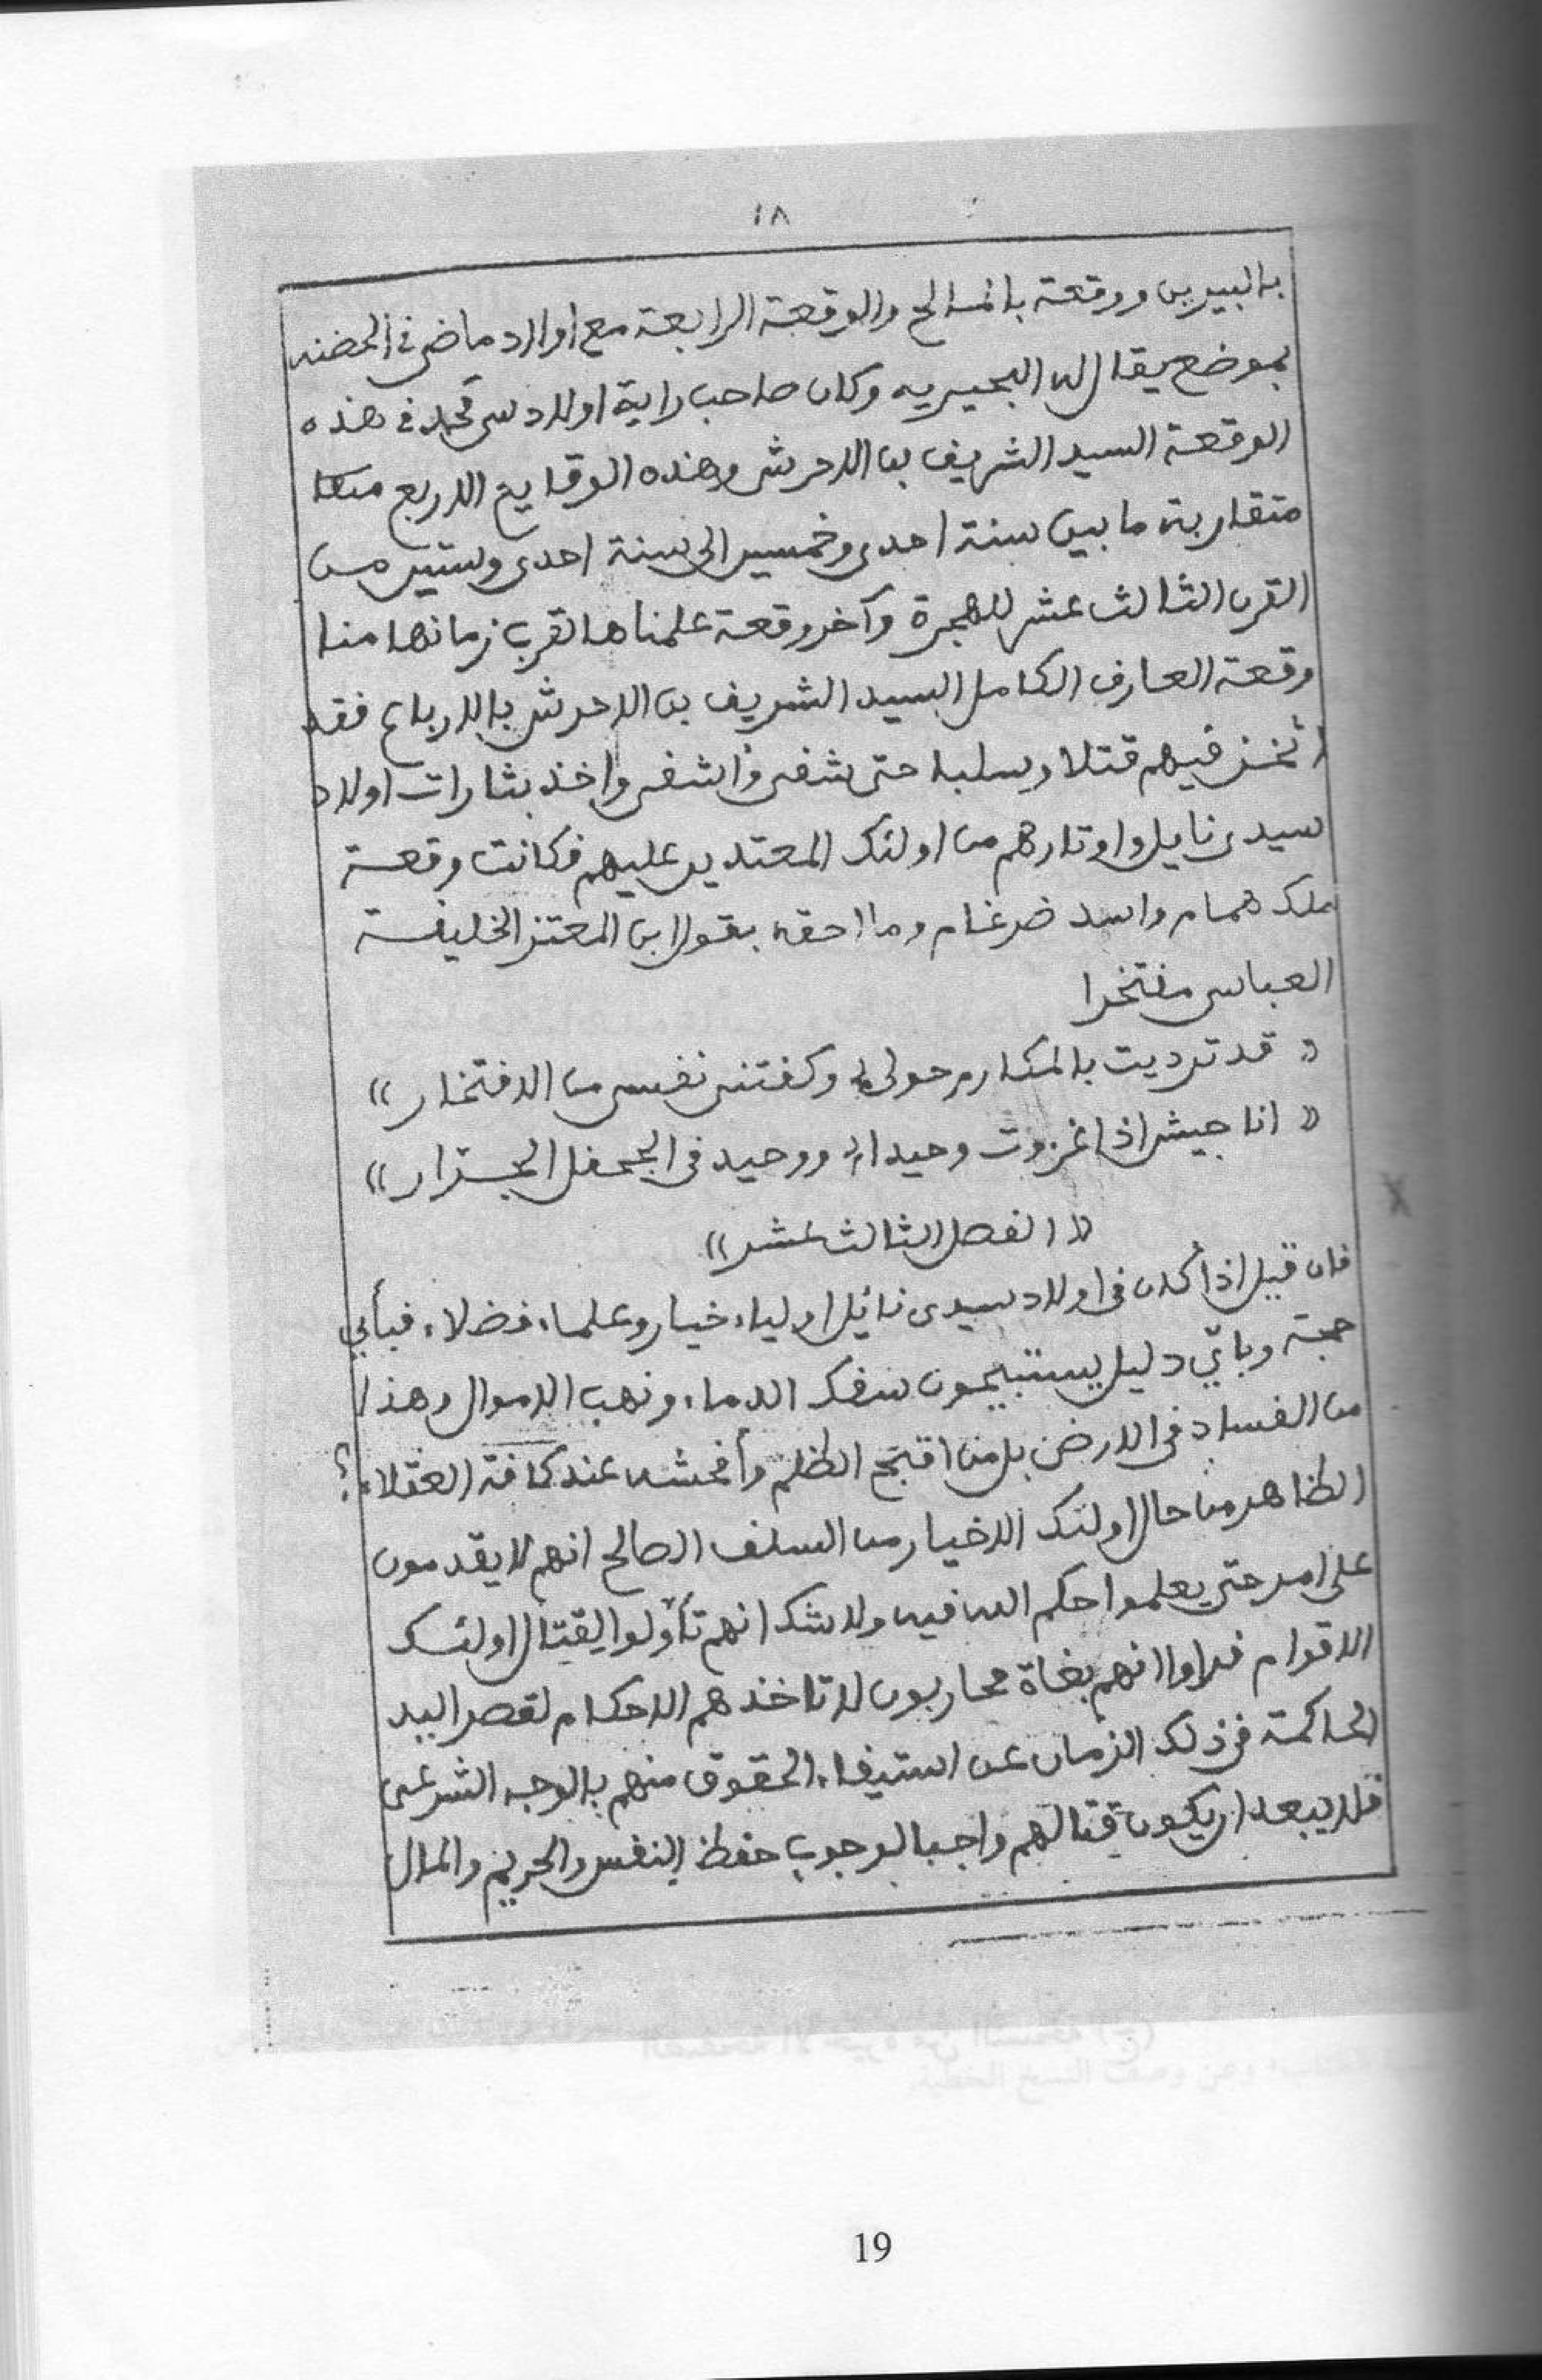 ١٨
بالبيرين ووقعة بالمسالح والوقعة الرابعة مع اولاد ماضي في الحضنه
بموضع يقال له البحيريه وكان صاحب راية اولاد سي محمد في هذه
الوقعة السيد الشريف بن الاحرش وهذه الوقايع الاربع
متقاربة ما بين سنة احدى وخمسين الى سنة احدى وستين من
القرن الثالث عشر للهجرة وآخر وقعة علمناها لقرب زمانها منا
وقعة العارف الكامل السيد الشريف بن الاحرش بالارباع فقد
أثخن فيهم قتلا وسلبا حتى شفى واشفى واخذ بثارات اولاد
سيدي نايل واوتارهم من اولئك المعتدين عليهم فكانت وقعة
ملك همام واسد ضرغام وما احقه بقول ابن المعتز الخليفة
العباسي مفتخرا
« قد ترديت بالمكارم حولي وكفتني نفسي من الافتخار »
« انا جيش اذا غزوت وحيدا ووحيد في الجحفل الجرّار »
« الفصل الثالث عشر »
فان قيل اذا كان في اولاد سيدي نائل اولياء خيار وعلماء فضلاء فبأي
حجة وبأيّ دليل يستبيحون سفك الدماء ونهب الاموال وهذا
من الفساد في الارض بل من اقبح الظلم وأفحشه عند كافة العقلاء؟
الظاهر من حال اولئك الاخيار من السلف الصالح انهم لا يقدمون
على امر حتى يعلموا حكم الله فيه ولا شك انهم تأولوا لقتال اولئك
الاقوام فراوا انهم بغاة محاربون لا تاخذهم الاحكام لقصر اليد
الحاكمة في ذلك الزمان عن استيفاء الحقوق منهم بالوجه الشرعي
فلا يبعد ان يكون قتالهم واجبا لوجوب حفظ النفس والحريم والمال
19